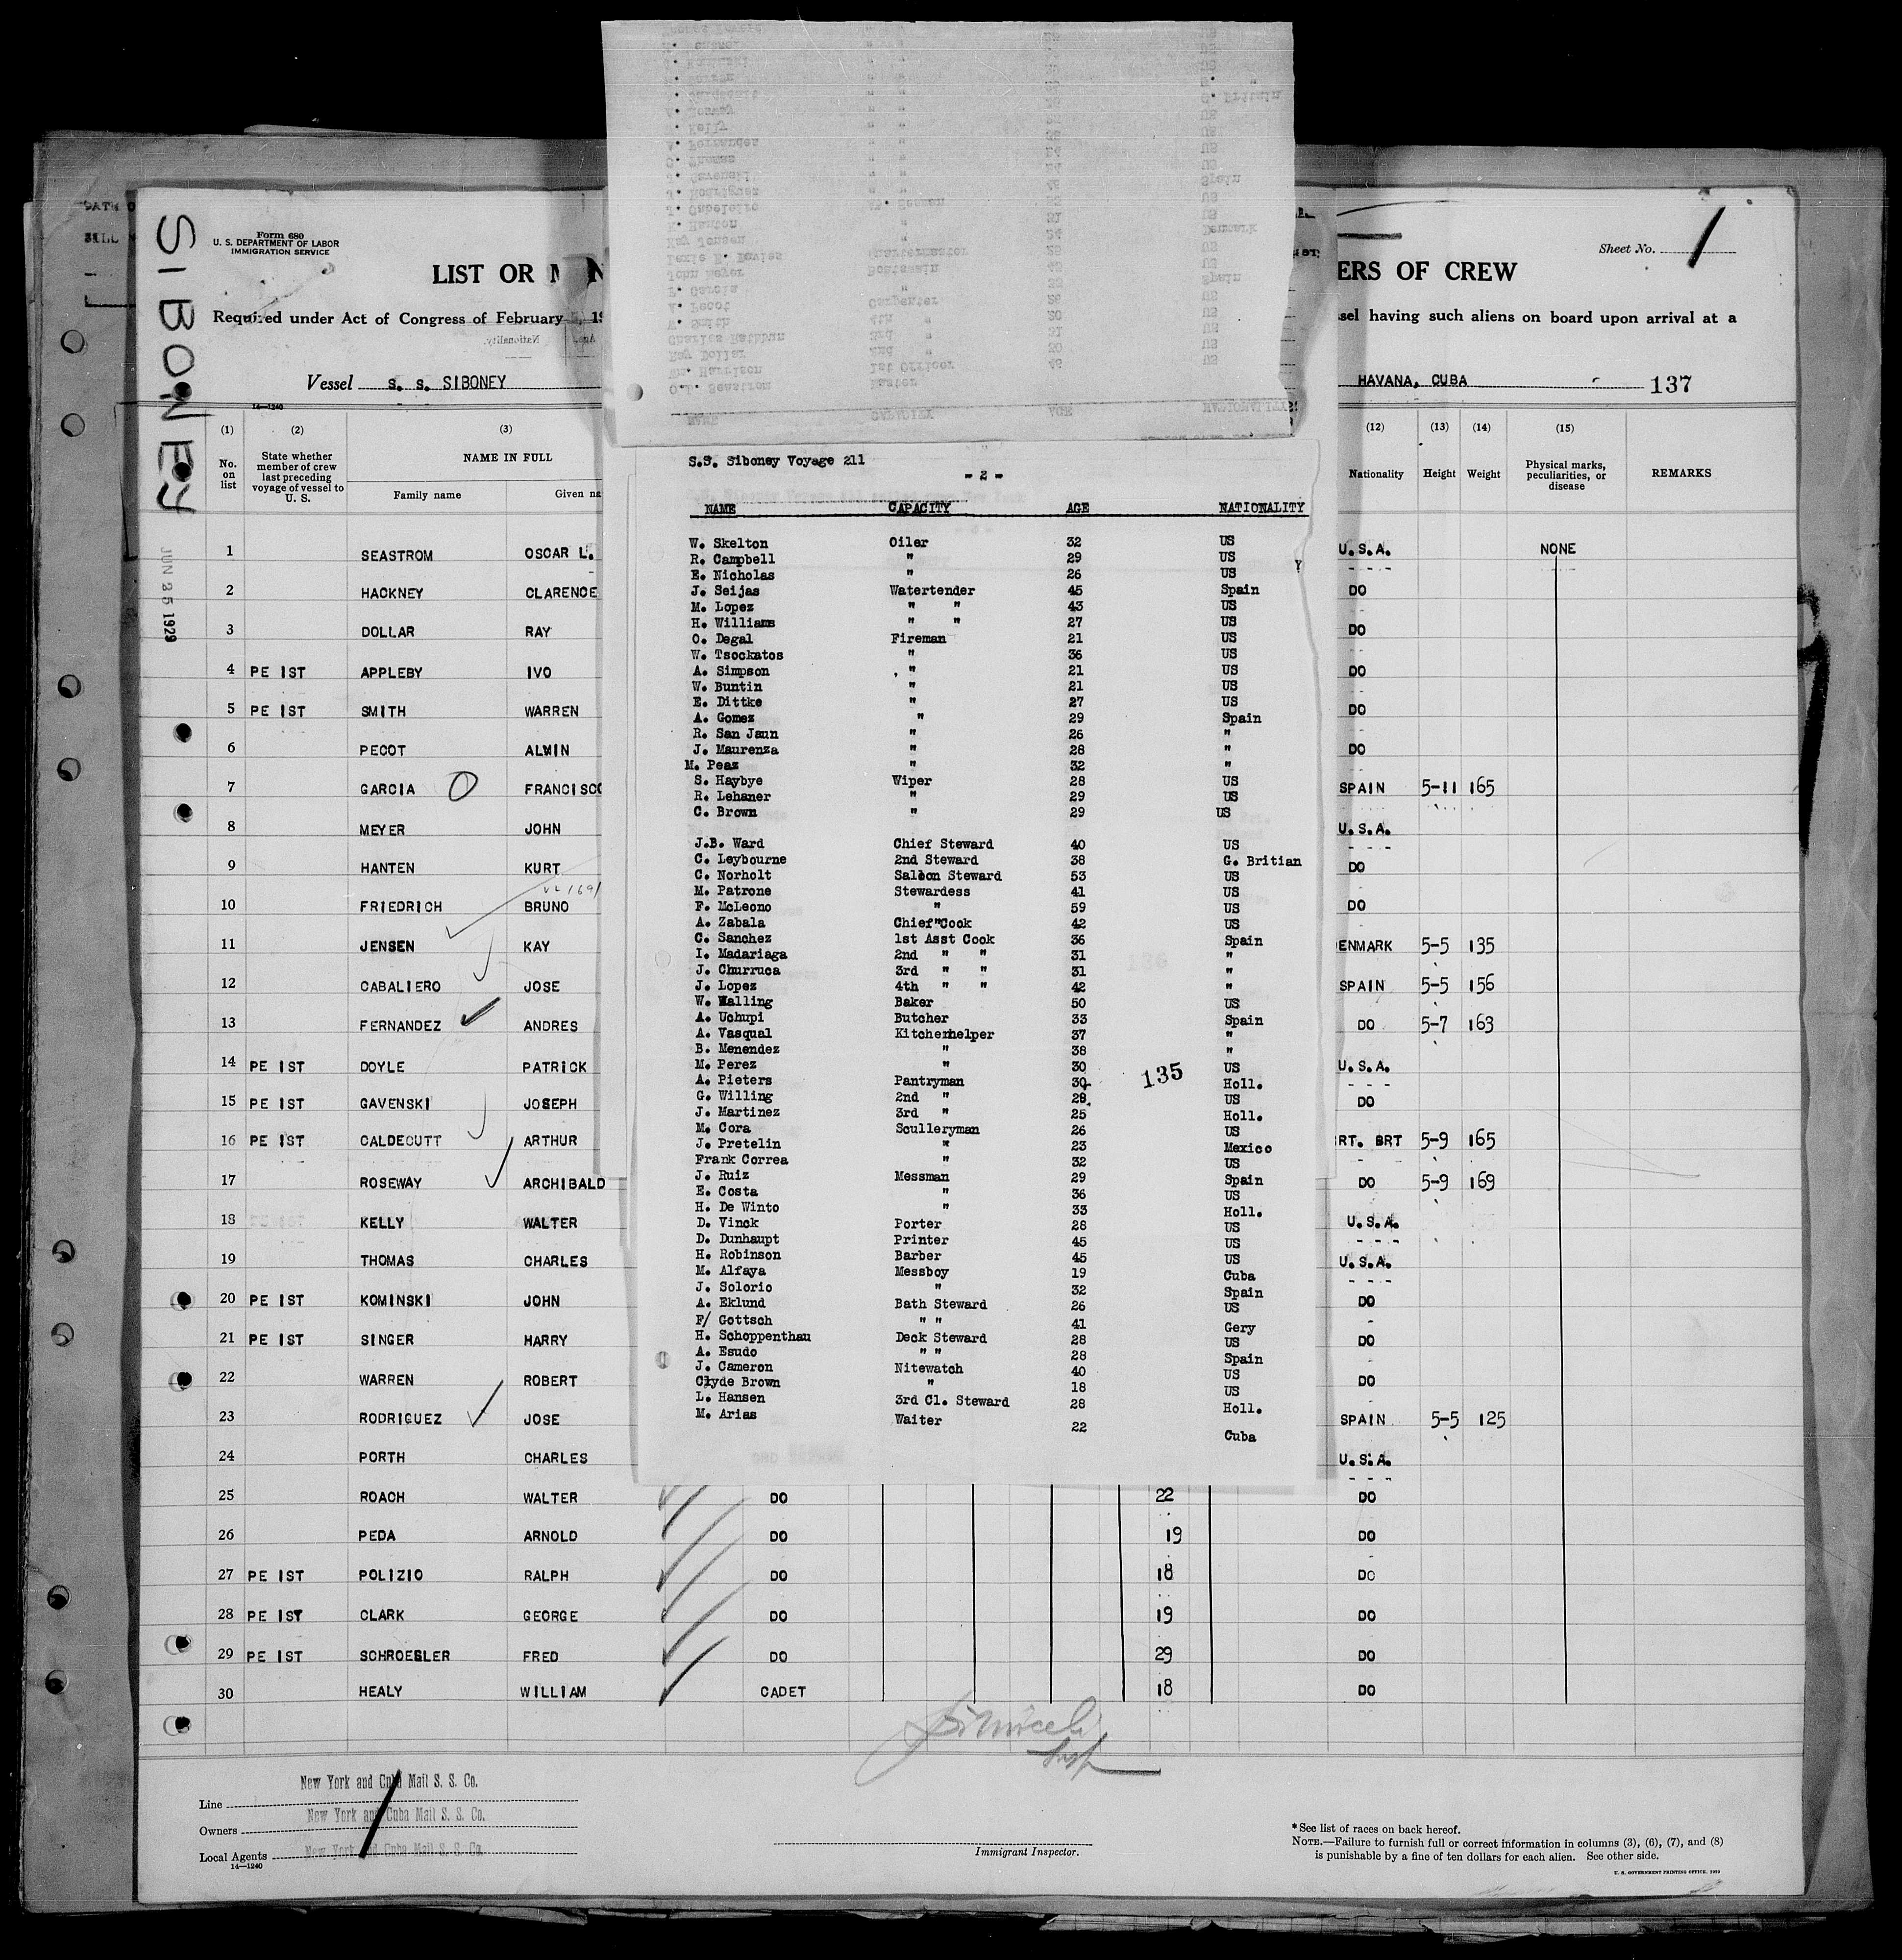 SIBONEY
JUN 25 1929
Form 680
U. S. DEPARTMENT OF LABOR
IMMIGRATION SERVICE
LIST OR
ERS OF CREW
Sheet No. 1
Required under Act of Congress of February
ssel having such aliens on board upon arrival at a
Vessel S. S. SIBONEY
HAVANA, CUBA 137
14—1240
(1) (2) (3) (12) (13) (14) (15)
No. on list
State whether member of crew last preceding voyage of vessel to U. S.
NAME IN FULL
Family name
Given na
Nationality Height Weight
Physical marks, peculiarities, or disease
REMARKS
1 SEASTROM OSCAR L. U.S.A. NONE
2 HACKNEY CLARENCE DO
3 DOLLAR RAY DO
4 PE 1ST APPLEBY IVO DO
5 PE 1ST SMITH WARREN DO
6 PECOT ALWIN DO
7 GARCIA O FRANCISCO SPAIN 5-11 165
8 MEYER JOHN U.S.A.
9 HANTEN KURT DO
10 FRIEDRICH BRUNO DO
11 JENSEN KAY ENMARK 5-5 135
12 CABALIERO JOSE SPAIN 5-5 156
13 FERNANDEZ ANDRES DO 5-7 163
14 PE 1ST DOYLE PATRICK U.S.A.
15 PE 1ST GAVENSKI JOSEPH DO
16 PE 1ST CALDECUTT ARTHUR RT. BRT 5-9 165
17 ROSEWAY ARCHIBALD DO 5-9 169
18 KELLY WALTER U.S.A.
19 THOMAS CHARLES U.S.A.
20 PE 1ST KOMINSKI JOHN DO
21 PE 1ST SINGER HARRY DO
22 WARREN ROBERT DO
23 RODRIGUEZ JOSE SPAIN 5-5 125
24 PORTH CHARLES U.S.A.
25 ROACH WALTER DO 22 DO
26 PEDA ARNOLD DO 19 DO
27 PE 1ST POLIZIO RALPH DO 18 DO
28 PE 1ST CLARK GEORGE DO 19 DO
29 PE 1ST SCHROEBLER FRED DO 29 DO
30 HEALY WILLIAM CADET 18 DO
S.S. Siboney Voyage 211
- 2 -
NAME CAPACITY AGE NATIONALITY
W. Skelton Oiler 32 US
R. Campbell " 29 US
E. Nicholas " 26 US
J. Seijas Watertender 45 Spain
M. Lopez " " 43 US
H. Williams " " 27 US
O. Degal Fireman 21 US
W. Tsockatos " 36 US
A. Simpson " 21 US
W. Buntin " 21 US
E. Dittke " 27 US
A. Gomez " 29 Spain
R. San Jaun " 26 "
J. Maurenza " 28 "
M. Peaz " 32 "
S. Haybye Wiper 28 US
R. Lehaner " 29 US
C. Brown " 29 US
J.B. Ward Chief Steward 40 US
C. Leybourne 2nd Steward 38 G. Britian
C. Norholt Saloon Steward 53 US
M. Patrone Stewardess 41 US
F. McLeono " 59 US
A. Zabala Chief"Cook 42 US
C. Sanchez 1st Asst Cook 36 Spain
I. Madariaga 2nd " " 31 "
J. Churruca 3rd " " 31 "
J. Lopez 4th " " 42 "
W. Walling Baker 50 US
A. Uchupi Butcher 33 Spain
A. Vasqual Kitchenhelper 37 "
B. Menendez " 38 "
M. Perez " 30 US
A. Pieters Pantryman 30 Holl.
135
G. Willing 2nd " 28 US
J. Martinez 3rd " 25 Holl.
M. Cora Sculleryman 26 US
J. Pretelin " 23 Mexico
Frank Correa " 32 US
J. Ruiz Messman 29 Spain
E. Costa " 36 US
H. De Winto " 33 Holl.
D. Vinck Porter 28 US
D. Dunhaupt Printer 45 US
H. Robinson Barber 45 US
M. Alfaya Messboy 19 Cuba
J. Solorio " 32 Spain
A. Eklund Bath Steward 26 US
F/ Gottsch " " 41 Gery
H. Schoppenthau Deck Steward 28 US
A. Esudo " " 28 Spain
J. Cameron Nitewatch 40 US
Clyde Brown " 18 US
L. Hansen 3rd Cl. Steward 28 Holl.
M. Arias Waiter 22 Cuba
New York and Cuba Mail S. S. Co.
Line
New York and Cuba Mail S. S. Co.
Owners
New York and Cuba Mail S. S. Co.
Local Agents
14—1240
Immigrant Inspector.
*See list of races on back hereof.
NOTE.—Failure to furnish full or correct information in columns (3), (6), (7), and (8)
is punishable by a fine of ten dollars for each alien. See other side.
U. S. GOVERNMENT PRINTING OFFICE. 1929